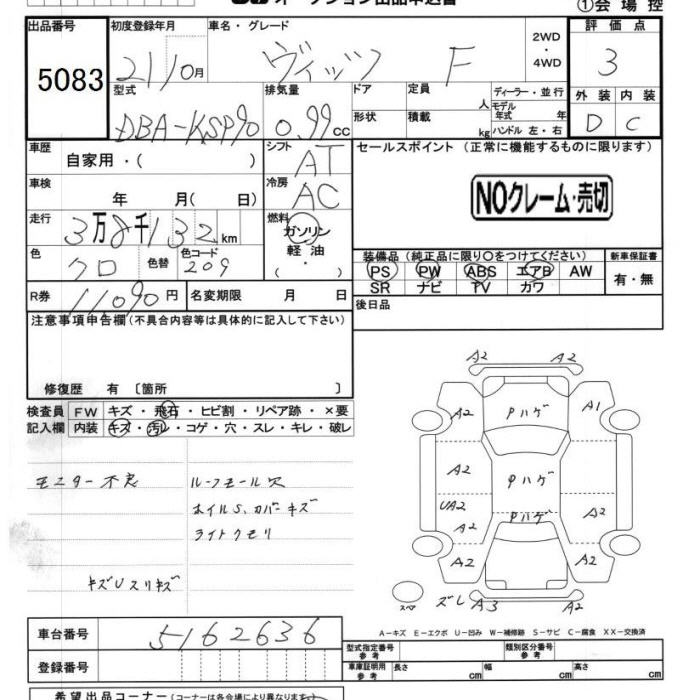 ①会場控
出品番号
5083
初度登録年月
21 10月
車名・グレード
ヴィッツ F
2WD
・
4WD
評価点
3
型式
DBA-KSP90
排気量
0.99cc
ドア
形状
定員
人
積載
kg
ディーラー・並行
モデル年式 年
ハンドル 左・右
外装 内装
D C
車歴
自家用・( )
シフト
AT
セールスポイント (正常に機能するものに限ります)
NOクレーム・売切
車検
年 月( 日)
冷房
AC
走行
3万8千132km
燃料
ガソリン
軽油
・( )
色
クロ
色替
色コード
209
装備品(純正品に限り○をつけてください)
PS PW ABS エアB AW
SR ナビ TV カワ
新車保証書
有・無
R券
11090円
名変期限 月 日
後日品
注意事項申告欄(不具合内容等は具体的に記入して下さい)
修復歴 有 〔箇所 〕
検査員記入欄
FW キズ・飛石・ヒビ割・リペア跡・×要
内装 キズ・汚レ・コゲ・穴・スレ・キレ・破レ
モニター不良
ルーフモール穴
ホイルS、カバーキズ
ライトクモリ
キズUスリキズ
A2 A2
A2 Pハゲ A1
A2 Pハゲ
UA2 Pハゲ A2
A2
A2 A2
スペア ズレ A3 A2
A-キズ E-エクボ U-凹み W-補修跡 S-サビ C-腐食 XX-交換済
車台番号
5162636
登録番号
型式指定番号
参考
類別区分番号
参考
車庫証明用
参考
長さ cm 幅 cm 高さ cm
希望出品コーナー(コーナーは各会場により異なりま